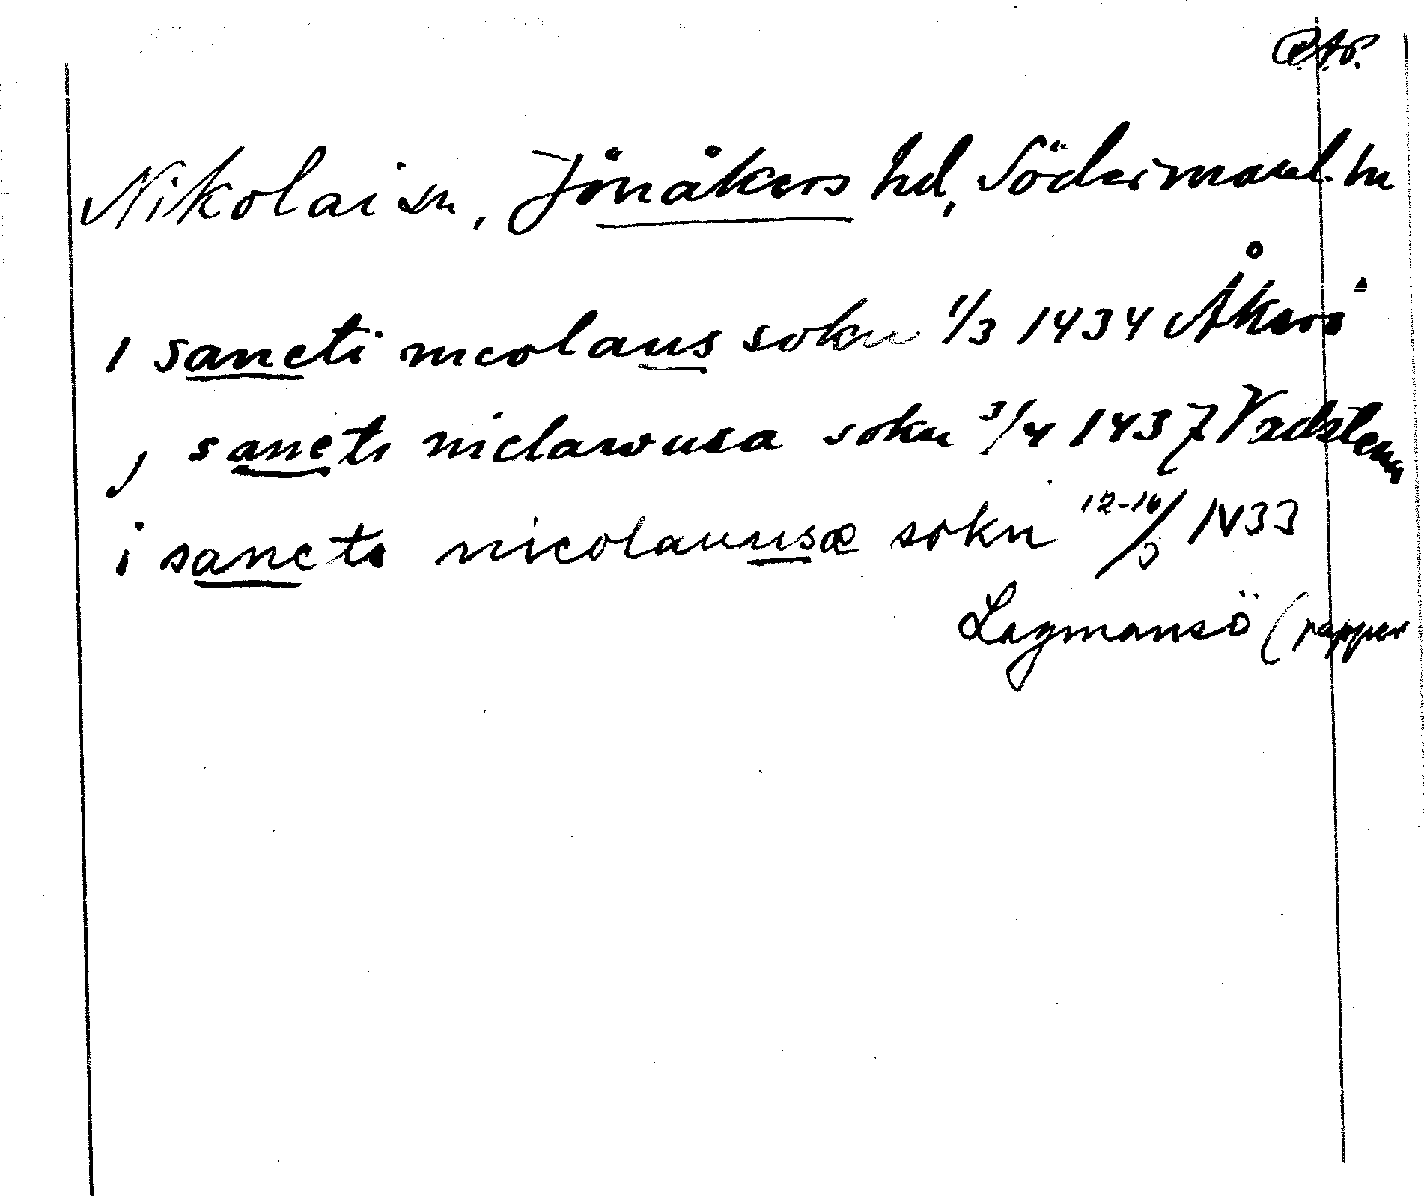 RAp.
Nikolai sn, Jönåkers hd, Södermanl. ln
i sancti nicolaus sokn 1/3 1434 Åkerö
j sancti niclawusa sokn 3/4 1437 Vadstena
i sancti nicolauusæ sokn 12-16/3 1433
Lagmansö (papper